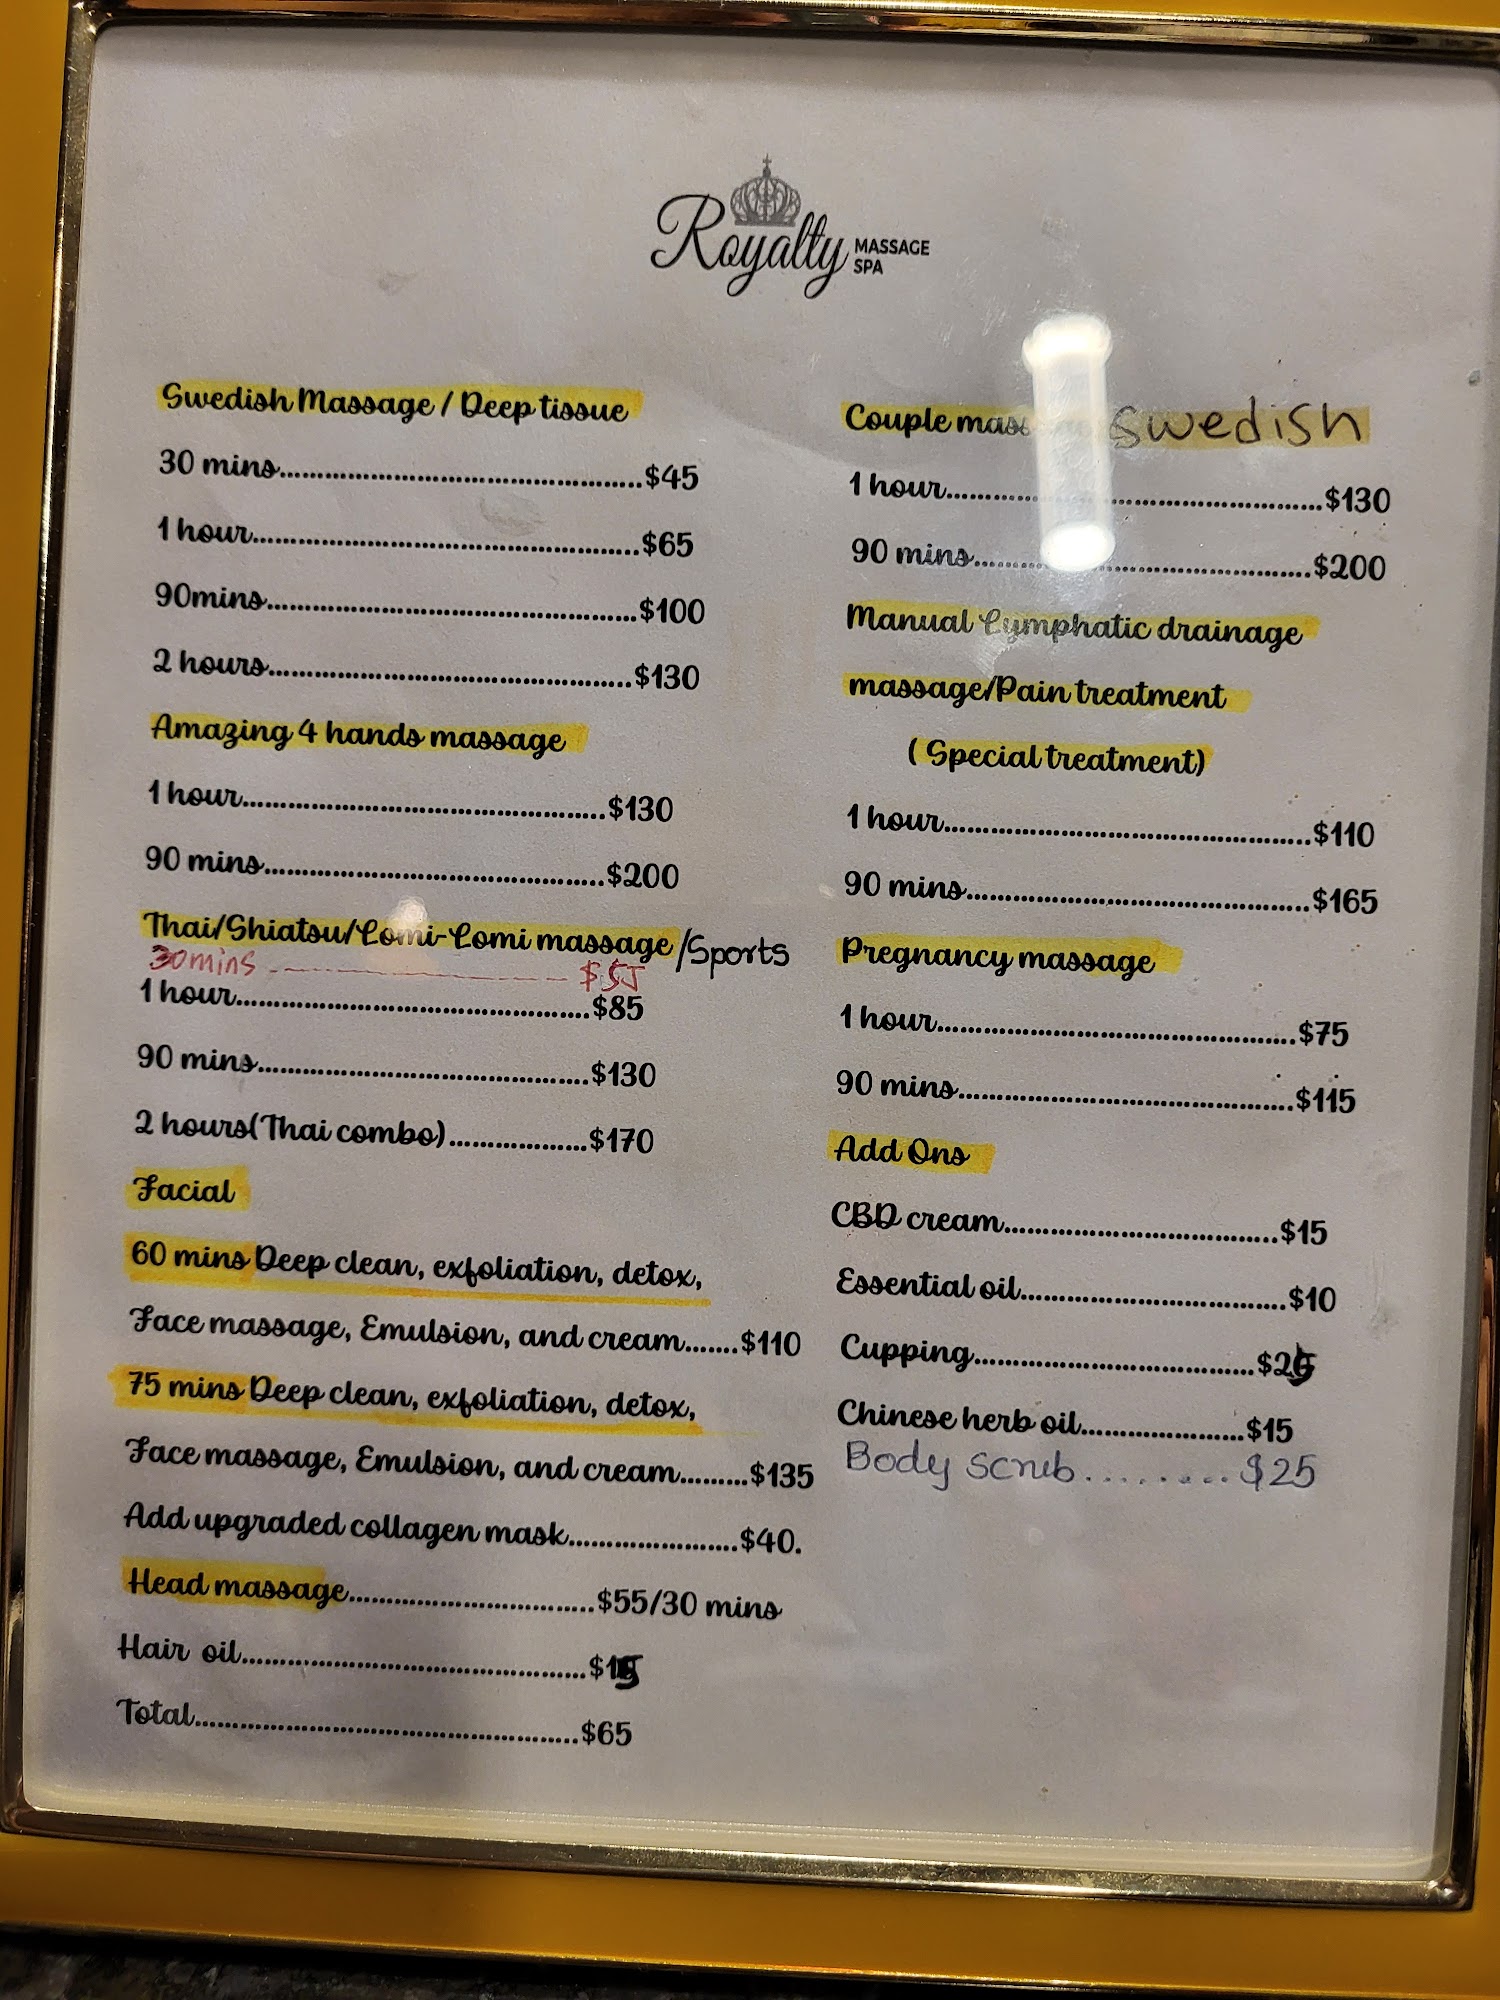 Royalty MASSAGE SPA
Swedish Massage / Deep tissue
30 mins..............................................$45
1 hour.................................................$65
90mins...............................................$100
2 hours..............................................$130
Amazing 4 hands massage
1 hour..............................................$130
90 mins...........................................$200
Thai/Shiatsu/Lomi-Lomi massage /Sports
30mins ------------------ $55
1 hour.............................................$85
90 mins..........................................$130
2 hours(Thai combo)..................$170
Facial
60 mins Deep clean, exfoliation, detox,
Face massage, Emulsion, and cream.......$110
75 mins Deep clean, exfoliation, detox,
Face massage, Emulsion, and cream.........$135
Add upgraded collagen mask......................$40.
Head massage................................$55/30 mins
Hair oil............................................$15
Total.................................................$65
Couple mas Swedish
1 hour................................................$130
90 mins...........................................$200
Manual Lymphatic drainage
massage/Pain treatment
( Special treatment)
1 hour...............................................$110
90 mins............................................$165
Pregnancy massage
1 hour..............................................$75
90 mins...........................................$115
Add Ons
CBD cream...................................$15
Essential oil..................................$10
Cupping....................................$25
Chinese herb oil.....................$15
Body scrub.........$25